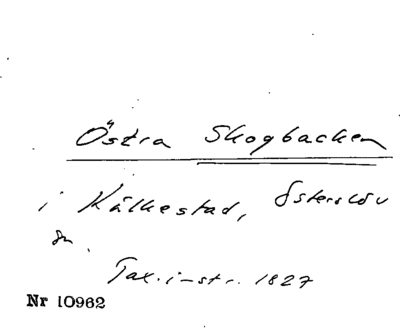 Östra Skogbacken
i Kälkestad, Österslöv
sn.
Tax.instr. 1827
Nr 10962